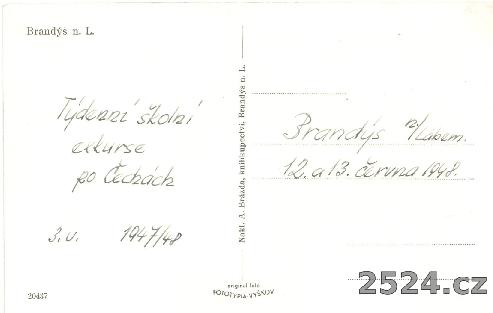 Brandýs n. L.
Týdenní školní
exkurse
po Čechách
3.V. 1947/48
Nakl. A. Brázda, knihkupectví, Brandýs n. L.
Brandýs n/Labem.
12. a 13. června 1948.
20437
original foto
FOTOTYPIA-VYŠKOV
2524.cz